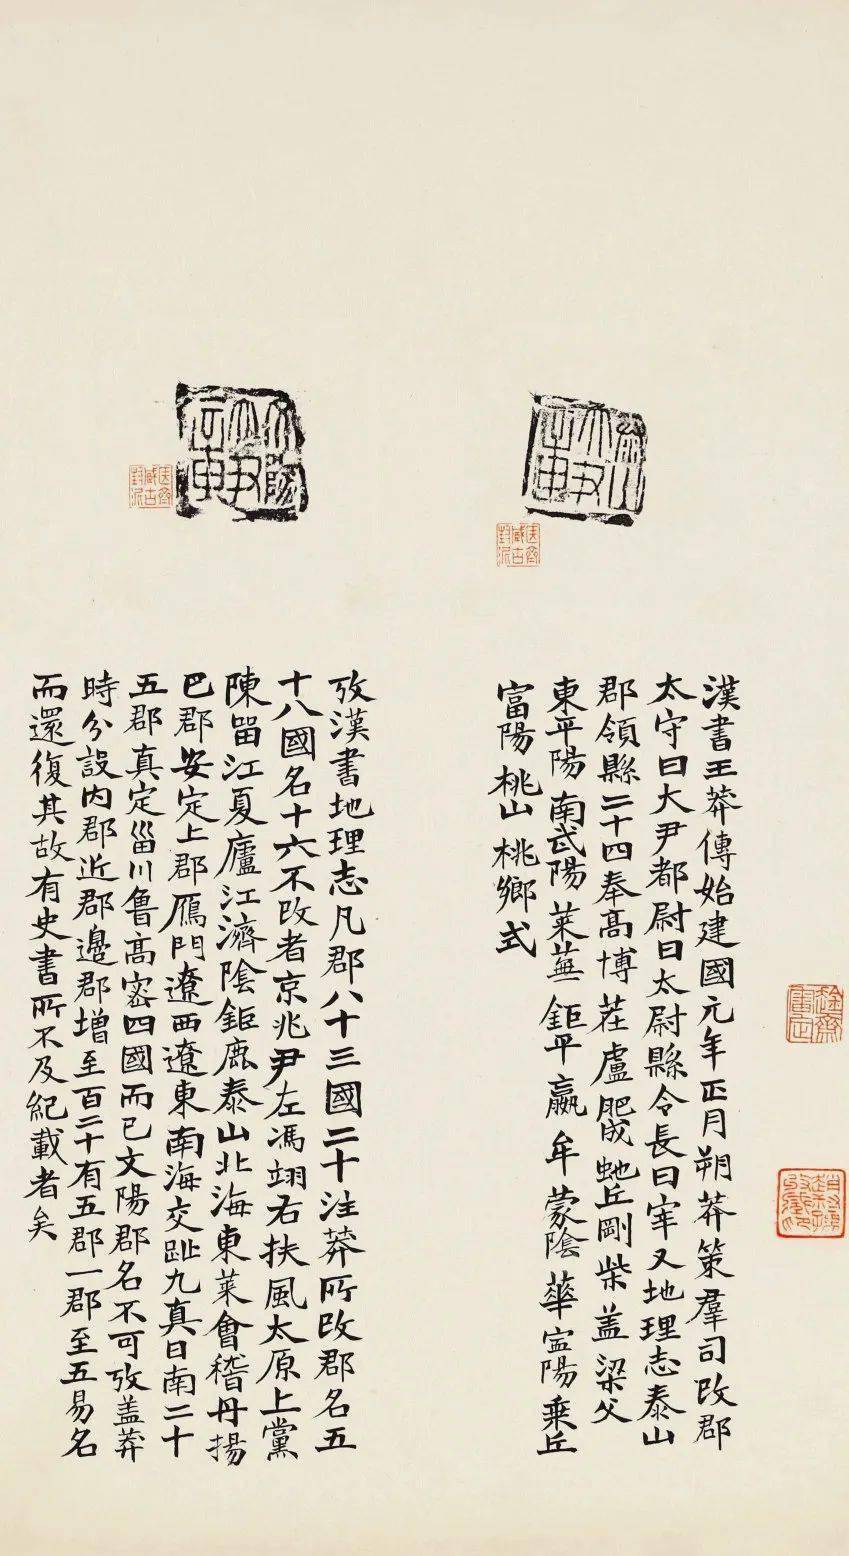 泰山大尹章
漢書王莽傳始建國元年正月朔莽策羣司改郡
太守曰大尹都尉曰太尉縣令長曰宰又地理志泰山
郡領縣二十四奉高博茌盧肥成虵丘剛柴盖梁父
東平陽南武陽萊蕪鉅平嬴牟蒙陰華寍陽乘丘
富陽桃山桃鄉式
文陽大尹章
攷漢書地理志凡郡八十三國二十注莽所改郡名五
十八國名十六不改者京兆尹左馮翊右扶風太原上黨
陳畱江夏廬江濟陰鉅鹿泰山北海東萊會稽丹揚
巴郡安定上郡鴈門遼西遼東南海交趾九真日南二十
五郡真定甾川魯高密四國而已文陽郡名不可攷盖莽
時分設内郡近郡邊郡增至百二十有五郡一郡至五易名
而還復其故有史書所不及紀載者矣